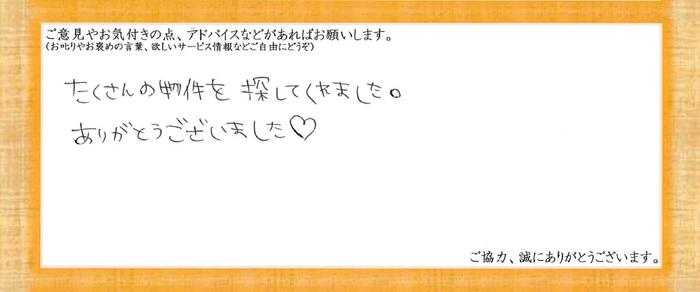 ご意見やお気付きの点、アドバイスなどがあればお願いします。
(お叱りやお褒めの言葉、欲しいサービス情報などご自由にどうぞ)
たくさんの物件を探してくれました。
ありがとうございました♡
ご協力、誠にありがとうございます。